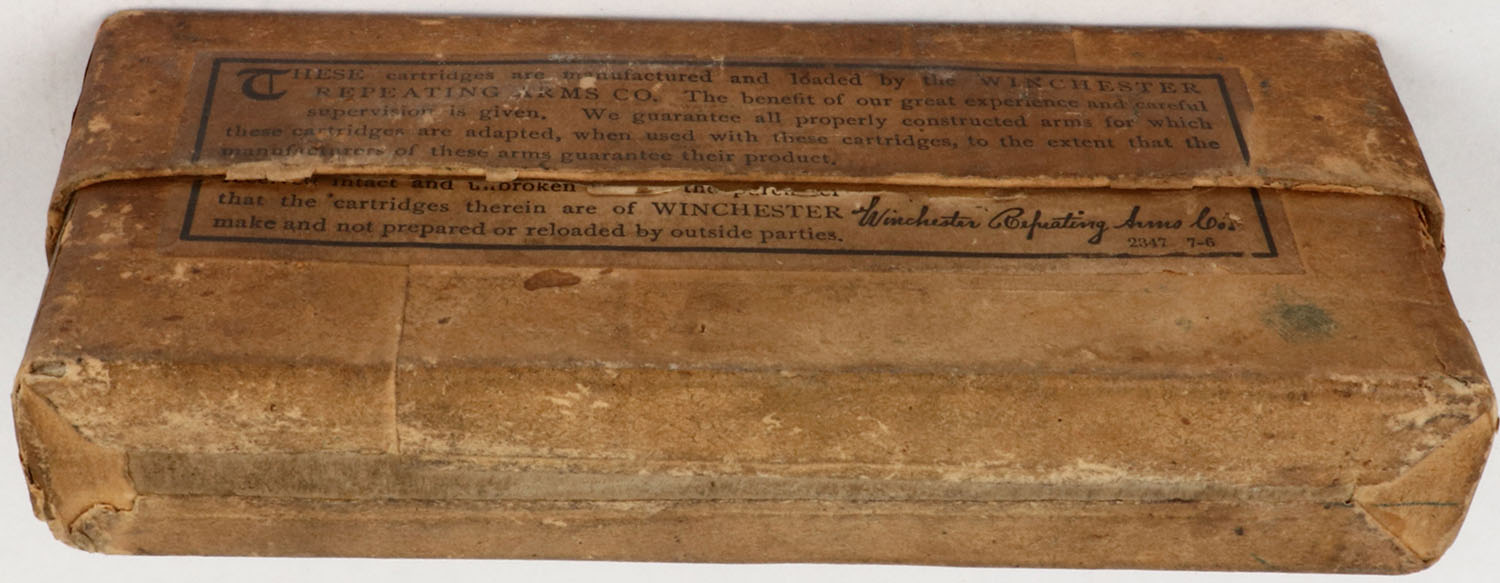 THESE cartridges are manufactured and loaded by the WINCHESTER
REPEATING ARMS CO. The benefit of our great experience and careful
supervision is given. We guarantee all properly constructed arms for which
these cartridges are adapted, when used with these cartridges, to the extent that the
manufacturers of these arms guarantee their product.
intact and unbroken the purchaser
that the cartridges therein are of WINCHESTER
make and not prepared or reloaded by outside parties.
Winchester Repeating Arms Co.
2347 7-6